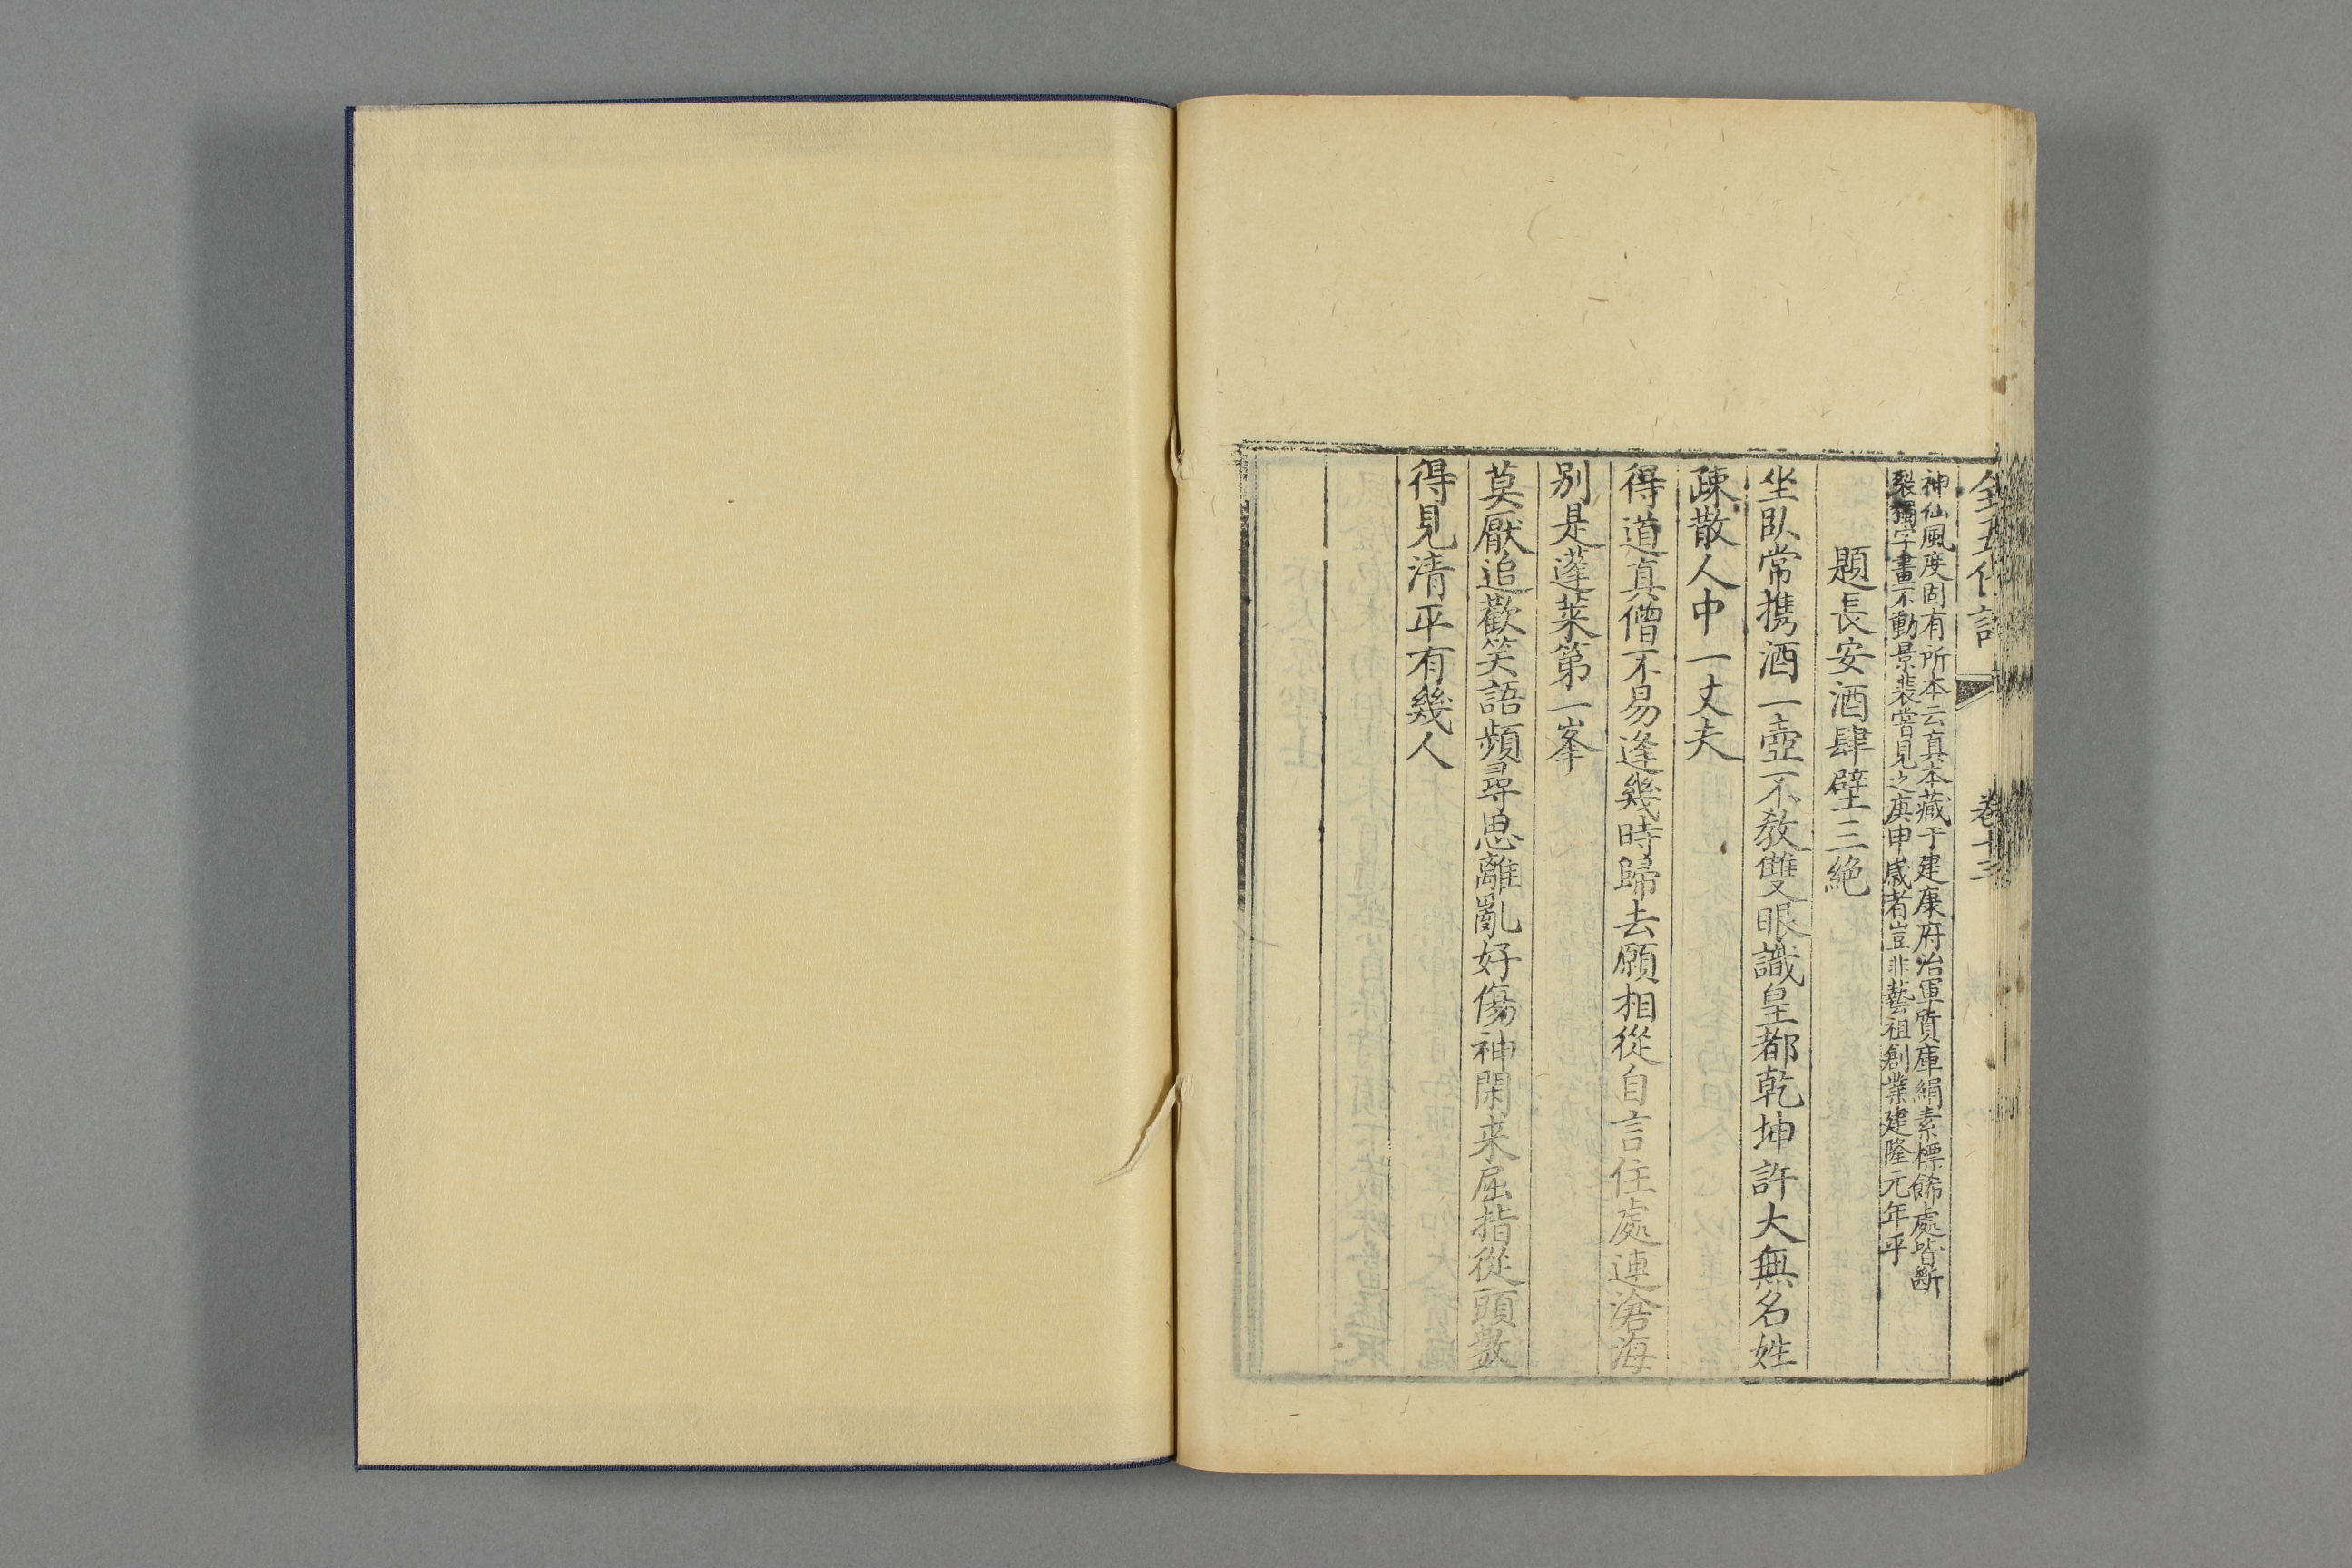 全五代詩 卷十三
神仙風度固有所本云真本藏于建康府治軍質庫絹素標飾處皆斷
裂獨字畫不動景裴嘗見之庚申歲者豈非藝祖創業建隆元年乎
題長安酒肆壁三絶
坐臥常携酒一壺不教雙眼識皇都乾坤許大無名姓
疎散人中一丈夫
得道真僧不易逢幾時歸去願相從自言住處連滄海
别是蓬莱第一峯
莫厭追歡笑語頻尋思離亂好傷神閑来屈指從頭數
得見清平有幾人